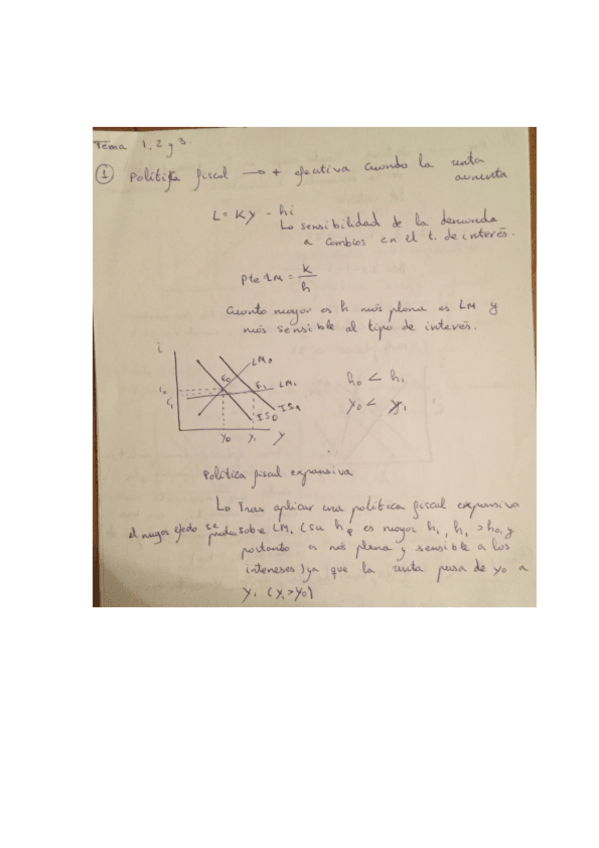 Tema 1, 2 y 3.
① Política fiscal → + efectiva cuando la renta
aumenta
L = KY - hi
↳ sensibilidad de la demanda
a cambios en el t. de interés.
Pte LM = k/h
Cuanto mayor es h más plana es LM y
más sensible al tipo de interés.
i
LM₀
E₀ E₁ LM₁
h₀ < h₁
i₀
i₁
IS₁
y₀ < y₁
IS₀
y₀ y₁ y
Política fiscal expansiva
↳ Tras aplicar una política fiscal expansiva
el mayor efecto se produce sobre LM₁ (su h es mayor h₁, h₁ > h₀, y
portanto es más plana y sensible a los
intereses) ya que la renta pasa de y₀ a
y₁ (y₁>y₀)